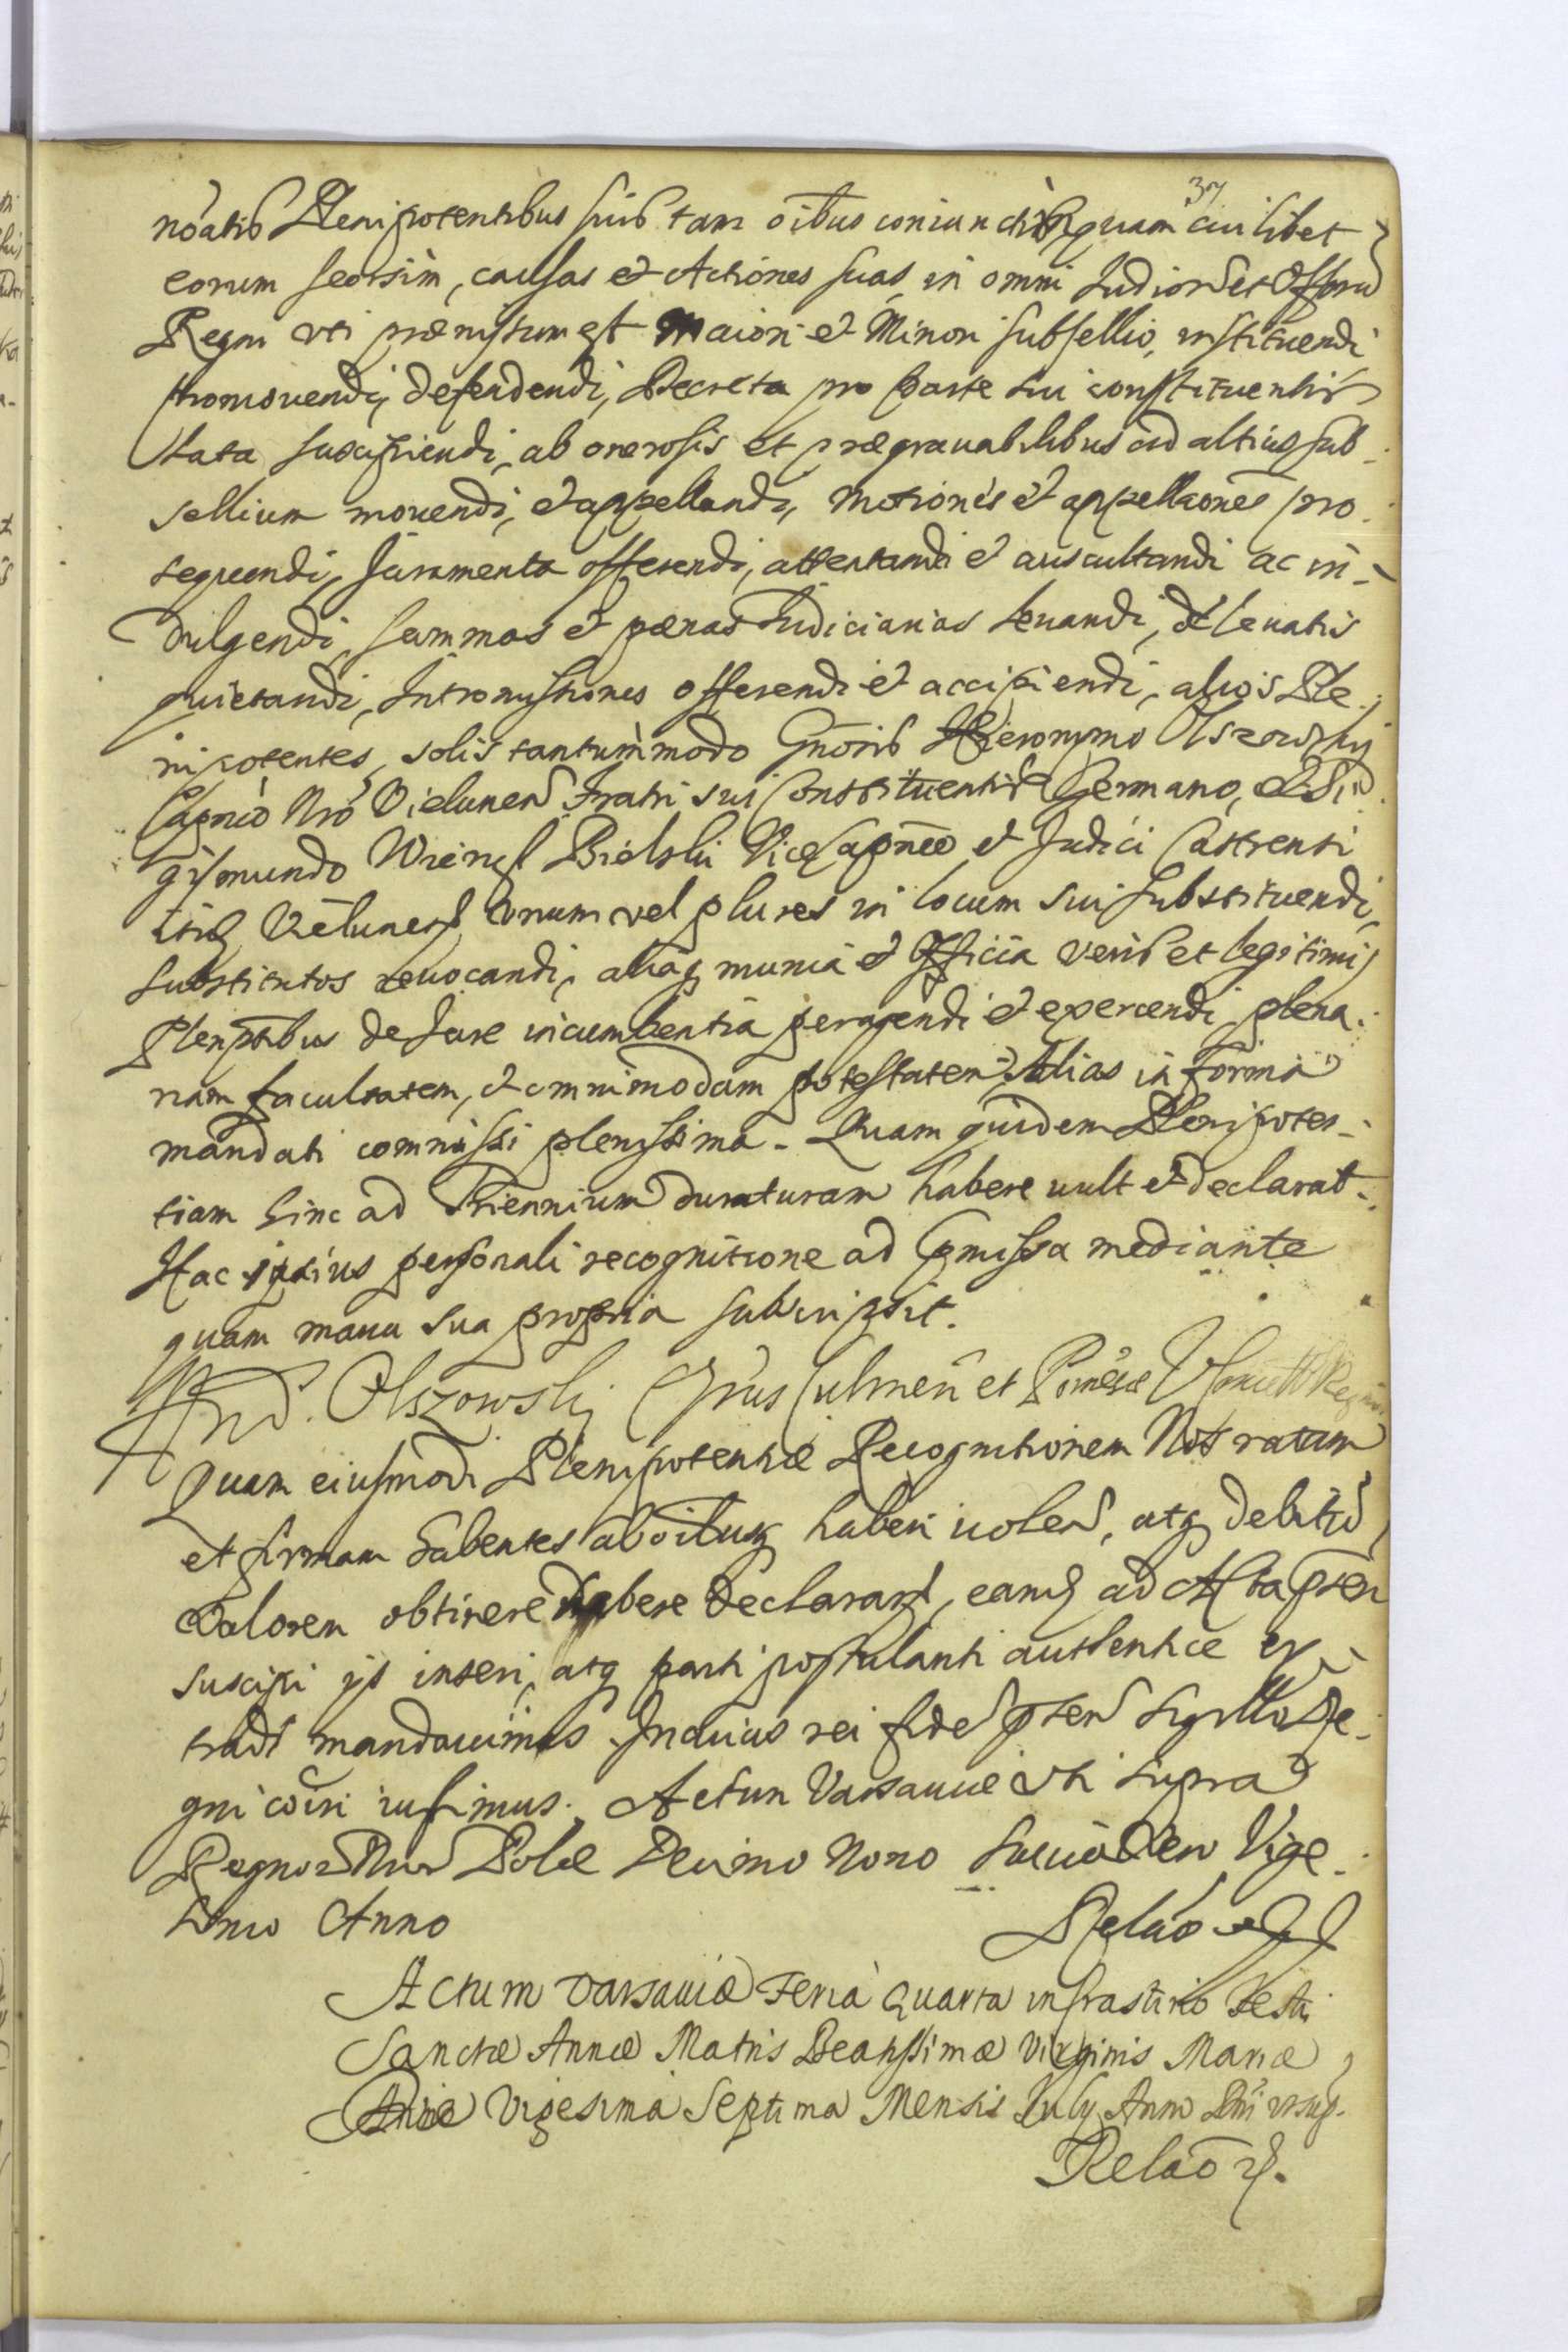 37
nōatis Plenipotentibus suis tam oībus coniunctim quam cuilibet
eorum seorsim, causas et Actiones suas in omni Iudiorū et Offorū
Regni vti præmissum est Maiori et Minori subsellio, instituendi
promouendi, defendendi, Decreta pro parte sui constituentis
Lata suscipiendi, ab onerosis et prægrauabilibus ad altius sub-
sellium mouendi, et appellandi, motiones et appellaones pro-
sequendi, Juramenta offerendi, attentandi et auscultandi ac in-
dulgendi, summas et pænas Iudiciarias leuandi, de leuatis
quietandi, Intromissiones offerendi et accipiendi, alios Ple-
nipotentes, solis tantummodo Gnōsis Hieronymo Olszowsky
Capneo Nro Vielunen Fratri sui Constituentis Germano, et Si-
gismundo Bielski Vice Capneo et Judici Castrensi
itid Vielunen vnum vel plures in locum sui substituendi,
substitutos reuocandi, aliaq munia et Officia veris et legitimis
Plenptibus de Jure incumbentia peragendi et exercendi plena-
riam facultatem, et omnimodam potestatem, Alias in forma
mandati commissi plenissima. Quam quidem Plenipoten-
tiam hinc ad Triennium duraturam habere uult et declarat.
Hac ipsius personali recognitione ad pmissa mediante
quam manu sua propria subscripsit.
And. Olszowski Eppus Culmen et Pomes V Regni
Quam eiusmodi Plenipotentiæ Recognitionem Nos ratam
et firmam habentes ab oībusq haberi uolen, atq debitū
valorem obtinere debere declaran, eamq ad Acta pñtia
suscipi ijs inseri, atq parti postulanti authentice ex-
tradi mandauimus. In cuius rei fidem pñten Sigillo Re-
gni coīri iussimus. Actum Varsauiæ vti supra
Regnor Nror Polæ Decimo Nono Sueciæ vero Vige-
simo Anno
Relāo
Actum Varsauiæ Feria Quarta in Crastino Festi
Sanctæ Annæ Matris Beatissimæ Virginis Mariæ
Die Vigesima Septima Mensis July Anno Dni vtsup.
Relaō